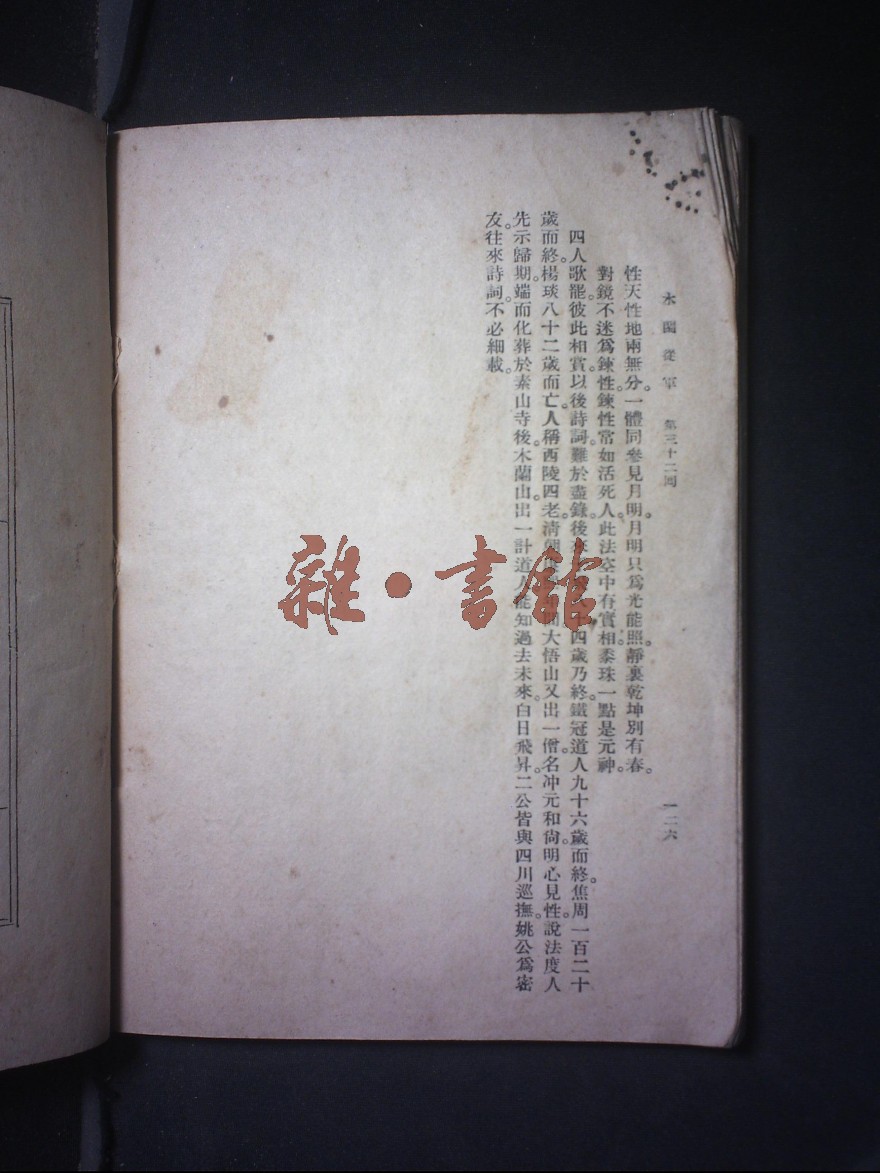 木蘭從軍 第三十二回 一二六
性天性地兩無分。一體同參見月明。月明只爲光能照。靜裏乾坤別有春。
對鏡不迷爲鍊性。鍊性常如活死人。此法空中有實相。黍珠一點是元神。
四人歌罷。彼此相賞。以後詩詞。難於盡錄。後 十四歲乃終。鐵冠道人九十六歲而終。焦周一百二十
歲而終。楊琰八十二歲而亡。人稱西陵四老。清 大悟山又出一僧。名冲元和尙。明心見性。說法度人
先示歸期。端而化。葬於素山寺後。木蘭山。出一計道人。能知過去未來。白日飛昇。二公皆與四川巡撫。姚公爲密
友。往來詩詞。不必細載。
雜·書館